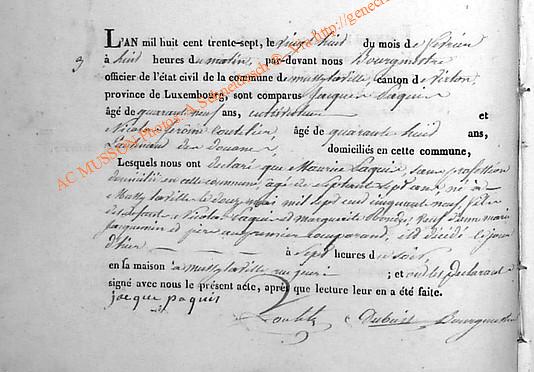 L'AN mil huit cent trente-sept, le vingt huit du mois de février
3 à huit heures du matin, par-devant nous Bourgmestre
officier de l'état civil de la commune de mussy la ville canton de Virton,
province de Luxembourg, sont comparus Jacques Paquis
âgé de quarante neuf ans, cultivateur et
Nicolas Jérôme âgé de quarante huit ans,
Lieutenant des douanes, domiciliés en cette commune,
Lesquels nous ont déclaré que Maurice Paquis, sans profession
domicilié en cette commune, agé de septante sept ans, né à
Mussy la ville le douze mai mil sept cent cinquante neuf, fils
de Nicolas Paquis et marguerite veuf d'anne marie
et père au premier comparant, est décédé le jour
d'hier à sept heures du soir,
en la maison à mussy la ville ; et ont les déclarants
signé avec nous le présent acte, après que lecture leur en a été faite.
jacque paquis
Dubuit Bourgmestre
AC MUSSON Photos: A Schneidesch © - Via http://genecr